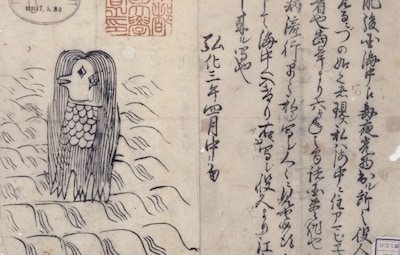 肥後国海中江毎夜光物出ル所之役人
づの如之者現ス私ハ海中ニ住アマビヱ
者也当年より六ヶ年之間諸国豊作也
病流行早々私写シ人々ニ見セ候
て海中へ入けり右写シ役人より江
申来ル写也
弘化三年四月中旬